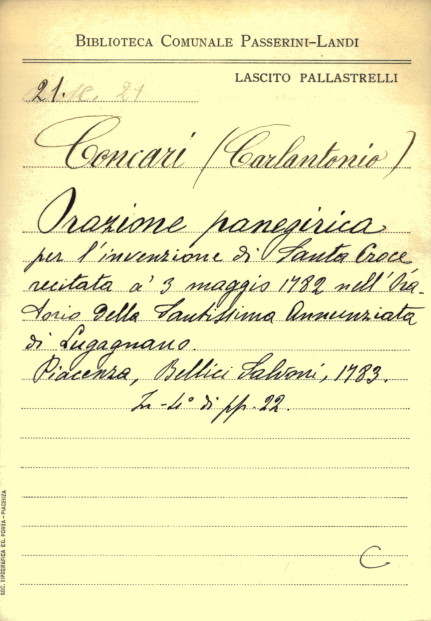 BIBLIOTECA COMUNALE PASSERINI-LANDI
LASCITO PALLASTRELLI
21. 29
Concari (Carlantonio)
Orazione panegirica
per l'invenzione di Santa Croce
recitata a' 3 maggio 1782 nell'Ora-
torio della Santissima Annunziata
di Lugagnano.
Piacenza, Bellici Salvoni, 1783.
In-4° di pp. 22.
C
SOC. TIPOGRAFICA ED. PORTA - PIACENZA